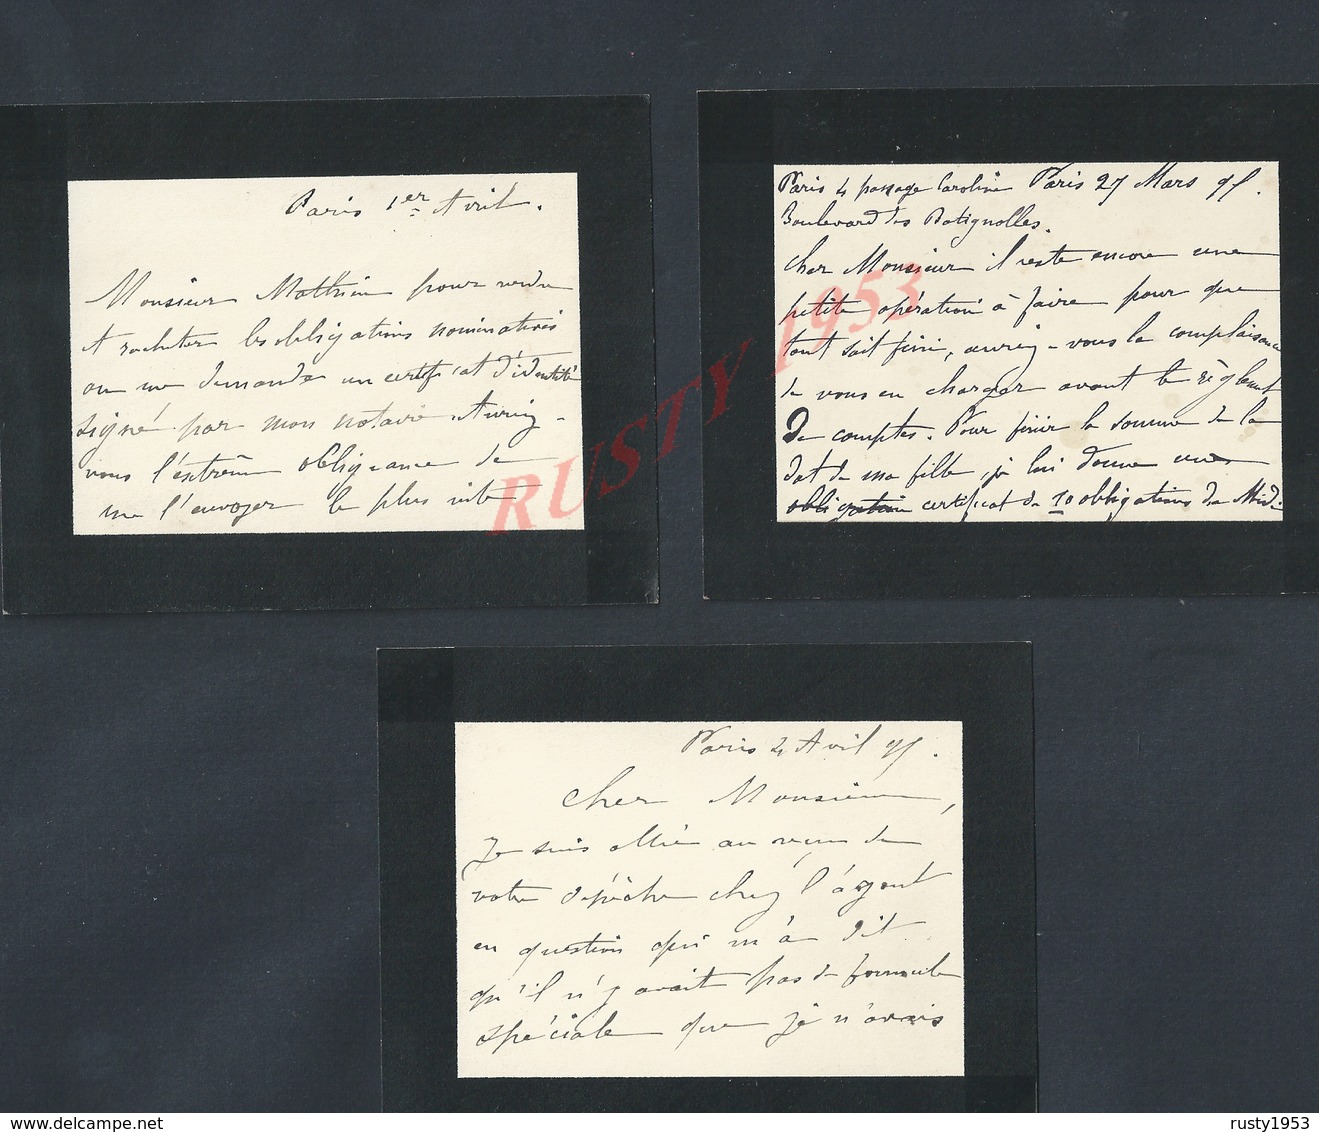 Paris 1er Avril.
Monsieur Mathieu pour vendre
et racheter les obligations nominatives
on me demande un certificat d'identité
signé par mon notaire. Auriez-
vous l'extrême obligeance de
me l'envoyer le plus vite
Paris 4 passage Caroline Paris 27 Mars 95.
Boulevard des Batignolles.
Cher Monsieur il reste encore une
petite opération à faire pour que
tout soit fini, auriez-vous la complaisance
de vous en charger avant le règlement
De comptes. Pour finir la somme de la
dot de ma fille, je lui donne une
certificat de 10 obligations du Midi
Paris 4 Avril 95.
Cher Monsieur,
Je suis allée au reçu de
votre dépêche chez l'agent
en question qui m'à dit
qu'il n'y avait pas de formule
spéciale que je n'avais
RUSTY 1953
www.delcampe.net
rusty1953